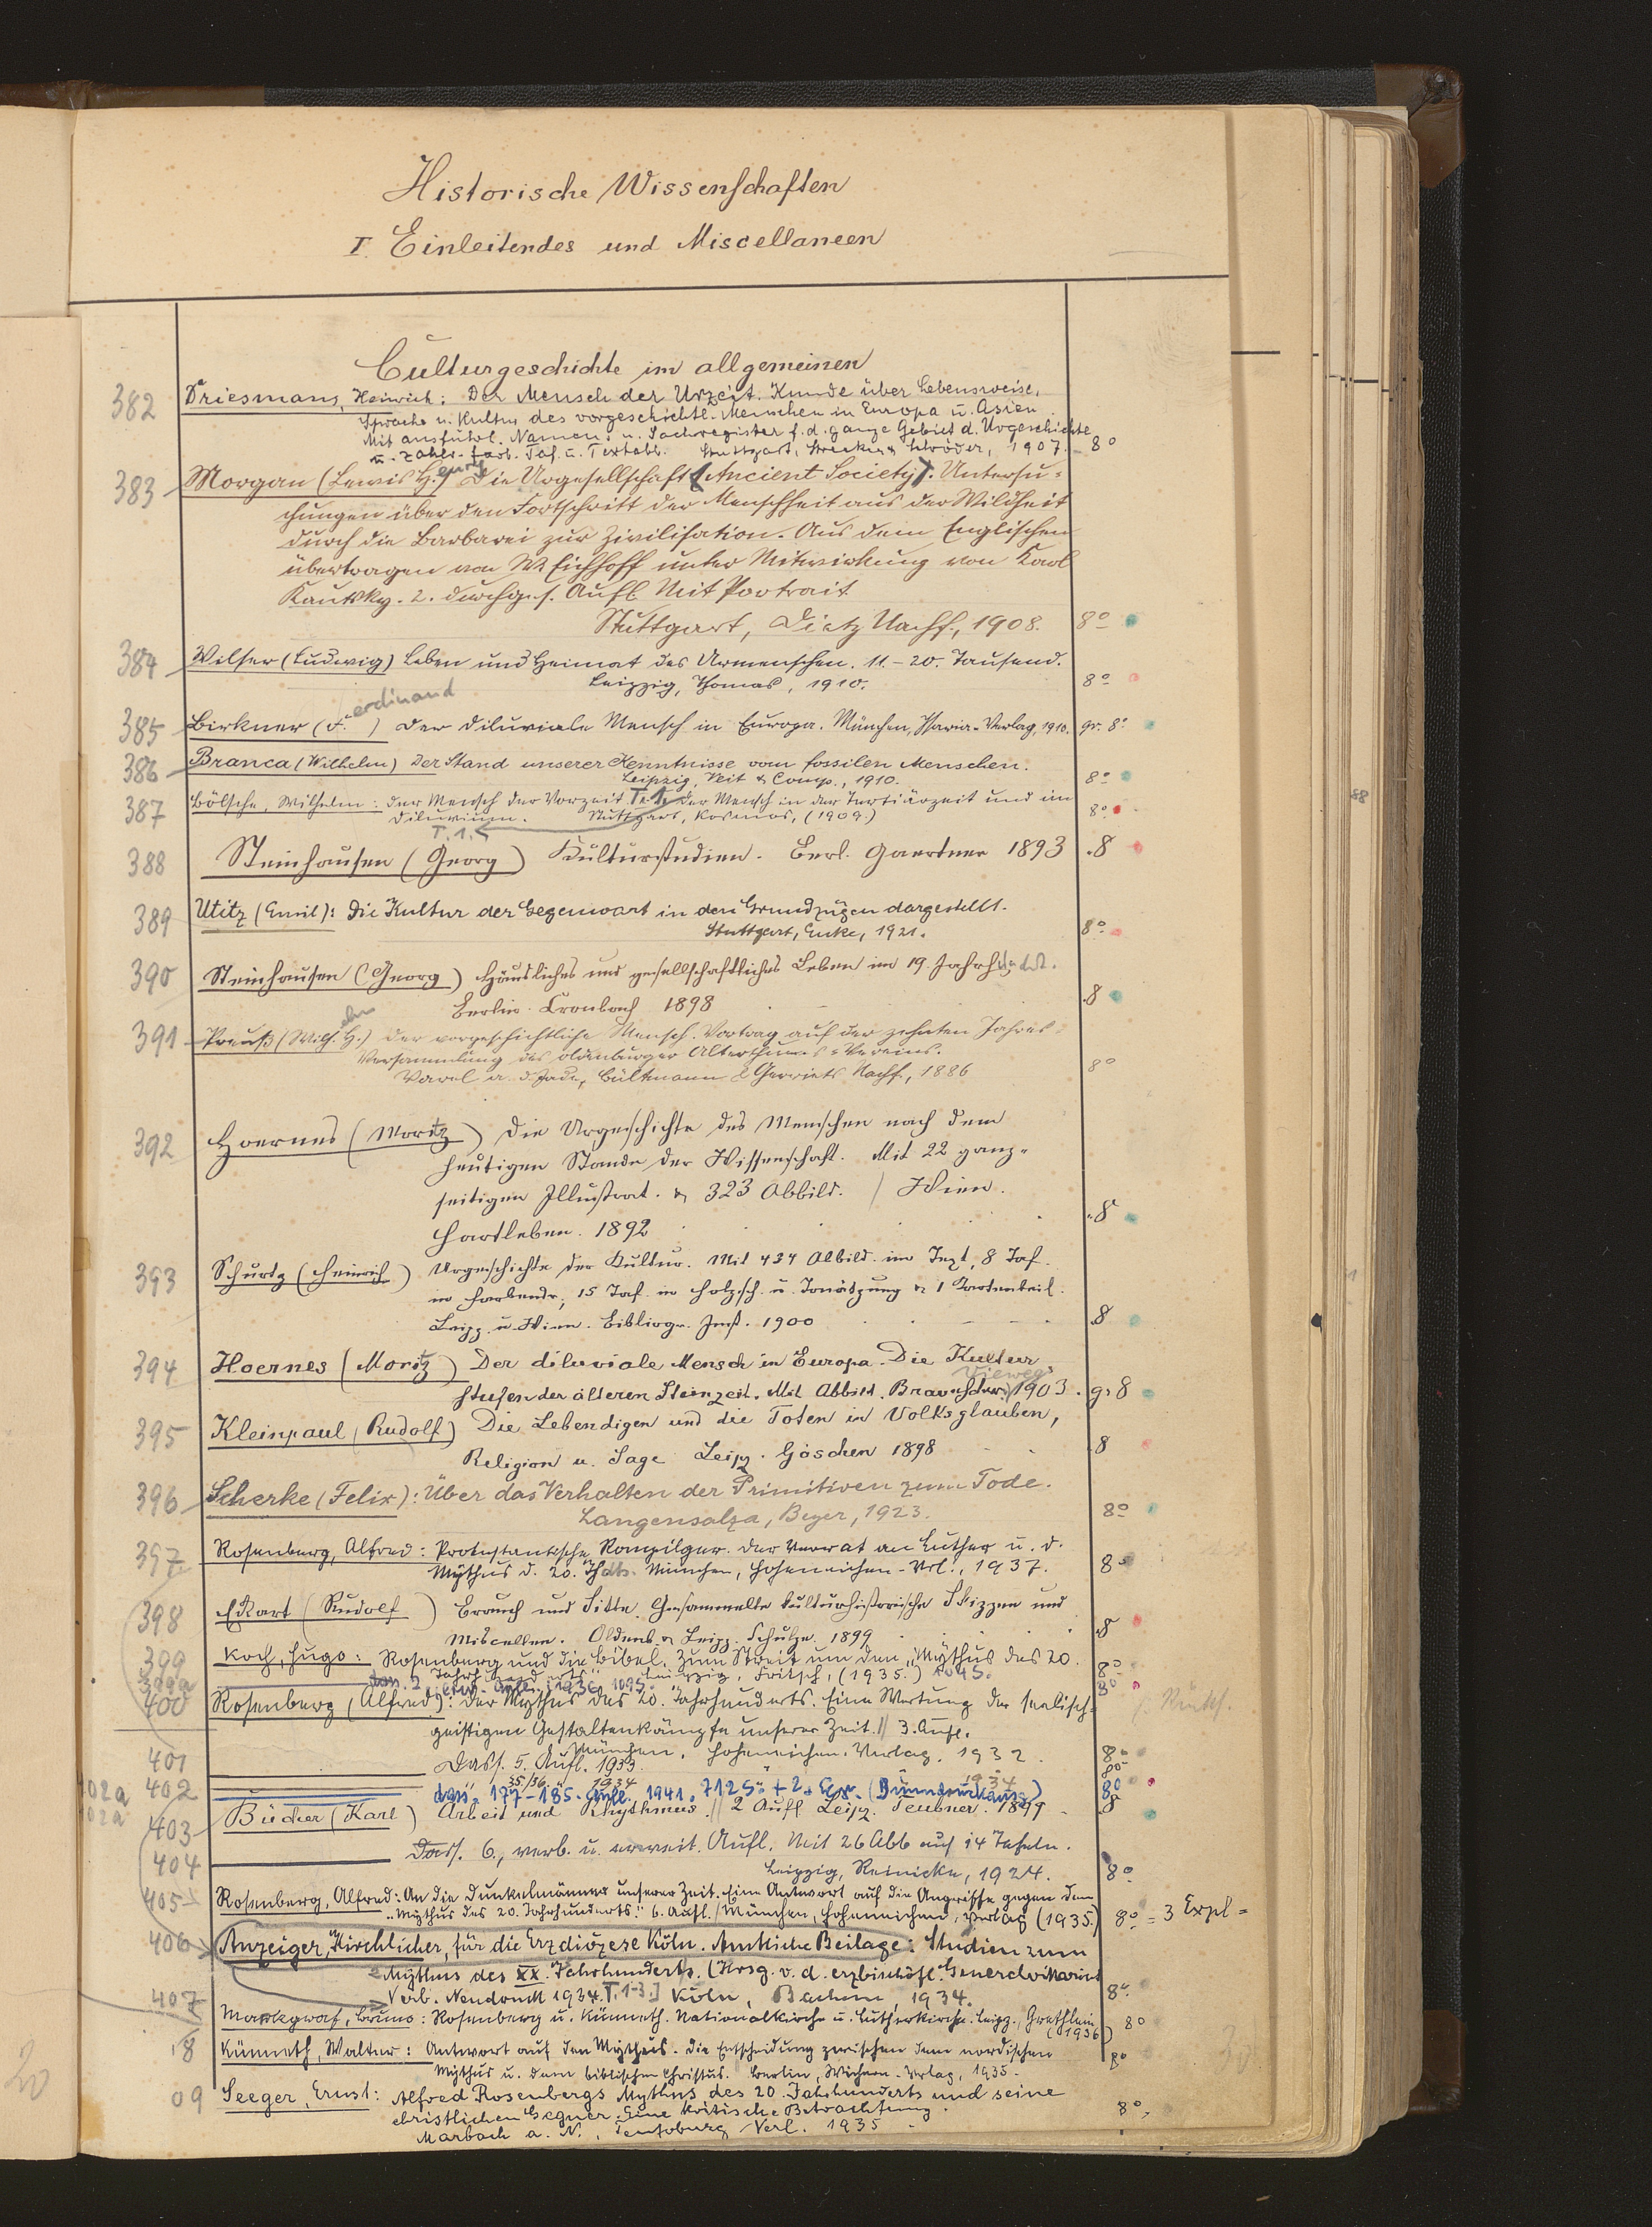 Historische Wissenschaften
I. Einleitendes und Miscellaneen
Culturgeschichte im allgemeinen
382 Driesmans, Heinrich: Der Mensch der Urzeit. Kunde über Lebensweise,
Sprache u. Kultur des vorgeschichtl. Menschen in Europa u. Asien
Mit ausführl. Namen- u. Sachregister f. d. ganze Gebiet d. Urgeschichte
u. zahlr. farb. Taf. u. Textabb. Stuttgart, Strecker & Schröder, 1907. 8°
383 Morgan (Lewis Henry) Die Urgesellschaft (Ancient Society). Untersu-
chungen über den Fortschritt der Menschheit aus der Wildheit
durch die Barbarei zur Zivilisation. Aus dem Englischen
übertragen von W. Eichhoff unter Mitwirkung von Karl
Kautsky. 2. durchges. Aufl. Mit Portrait
Stuttgart, Dietz Nachf., 1908. 8°
384 Wilser (Ludwig) Leben und Heimat des Urmenschen. 11.-20. Tausend.
Leipzig, Thomas, 1910. 8°
385 Birkner (Ferdinand) Der diluviale Mensch in Europa. München, Isaria-Verlag, 1910. gr. 8°
386 Branca (Wilhelm) Der Stand unserer Kenntnisse vom fossilen Menschen.
Leipzig, Veit & Comp., 1910. 8°
387 Bölsche, Wilhelm: Der Mensch der Vorzeit. Te. 1. Der Mensch in der Tertiärzeit und im
Diluvium. Stuttgart, Kosmos, (1909.) 8°
T. 1.
388 Steinhausen (Georg) Kulturstudien. Berl. Gaertner 1893 8
389 Utitz (Emil): Die Kultur der Gegenwart in den Grundzügen dargestellt.
Stuttgart, Enke, 1921. 8°
390 Steinhausen (Georg) Häusliches und gesellschaftliches Leben im 19. Jahrhundert.
Berlin. Cronbach 1898 8
391 Preuß (Wilhelm H.) Der vorgeschichtliche Mensch. Vortrag auf der zehnten Jahres-
Versammlung des Oldenburger Alterthums-Vereins.
Varel a. d. Jade, Bültmann & Gerriets Nachf., 1886 8°
392 Hoernes (Moritz) Die Urgeschichte des Menschen nach dem
heutigen Stande der Wissenschaft. Mit 22 ganz-
seitigen Illustrat. & 323 Abbild. / Wien.
Hartleben. 1892 8
393 Schurtz (Heinrich) Urgeschichte der Kultur. Mit 434 Abbild. im Text, 8 Taf.
in Farbendr., 15 Taf. in Holzsch. u. Tonätzung & 1 Kartenbeil.
Leipz. u. Wien. Bibliogr. Inst. 1900 8
394 Hoernes (Moritz) Der diluviale Mensch in Europa. Die Kultur
Vieweg
stufen der älteren Steinzeit. Mit Abbild. Braunschw. 1903. gr 8
395 Kleinpaul (Rudolf) Die Lebendigen und die Toten in Volksglauben,
Religion u. Sage Leipz. Göschen 1898 8
396 Scherke (Felix): Über das Verhalten der Primitiven zum Tode.
Langensalza, Beyer, 1923. 8°
397 Rosenberg, Alfred: Protestantische Rompilger. Der Verrat an Luther u. d.
Mythus d. 20. Jhdts. München, Hoheneichen-Verl., 1937. 8°
398 Eckart (Rudolf) Brauch und Sitte. Gesammelte kulturhistorische Skizzen und
Miscellen. Oldenb. & Leipz. Schulze. 1899 8
399 Koch, Hugo: Rosenberg und die Bibel. Zum Streit um den "Mythus des 20.
Jahrhunderts" Leipzig, Fritsch, (1935.) 8°
399a 1936 8°
400 Rosenberg (Alfred): Der Mythus des 20. Jahrhunderts. Eine Wertung der seelisch-
geistigen Gestaltenkämpfe unserer Zeit. // 3. Aufl.
München, Hoheneichen-Verlag, 1932. 8°
401 Dass. 5. Aufl. 1933. 8°
402a 402 35/36. 1934
dass. 177-185. Aufl. 1941. 8°
403 Bücher (Karl) Arbeit und Rhythmus. // 2 Aufl Leipz. Teubner. 1899 8
404 Dass. 6., verb. u. erweit. Aufl. Mit 26 Abb auf 14 Tafeln.
Leipzig, Reinicke, 1924. 8°
405 Rosenberg, Alfred: An die Dunkelmänner unserer Zeit. Eine Antwort auf die Angriffe gegen den
"Mythus des 20. Jahrhunderts." 6. Aufl. / München, Hoheneichen-Verlag (1935.) 8° = 3 Expl =
406 Anzeiger, Kirchlicher, für die Erzdiözese Köln. Amtliche Beilage: Studien zum
Mythus des XX. Jahrhunderts. (Hrsg. v. d. erzbischöfl. Generalvikariat
Verb. Neudruck 1934. T. 1-3.] Köln, Bachem, 1934. 8°
407 Markgraf, Bruno: Rosenberg u. Künneth. Nationalkirche u. Lutherkirche. Leipz., Grethlein (1936) 8°
8 Künneth, Walter: Antwort auf den Mythus. Die Entscheidung zwischen dem nordischen
Mythus u. dem biblischen Christus. Berlin, Wichern-Verlag, 1935. 8°
09 Seeger, Ernst: Alfred Rosenbergs Mythus des 20. Jahrhunderts und seine
christlichen Gegner. Eine kritische Betrachtung.
Marbach a. N., Teutoburg Verl. 1935 8°
20